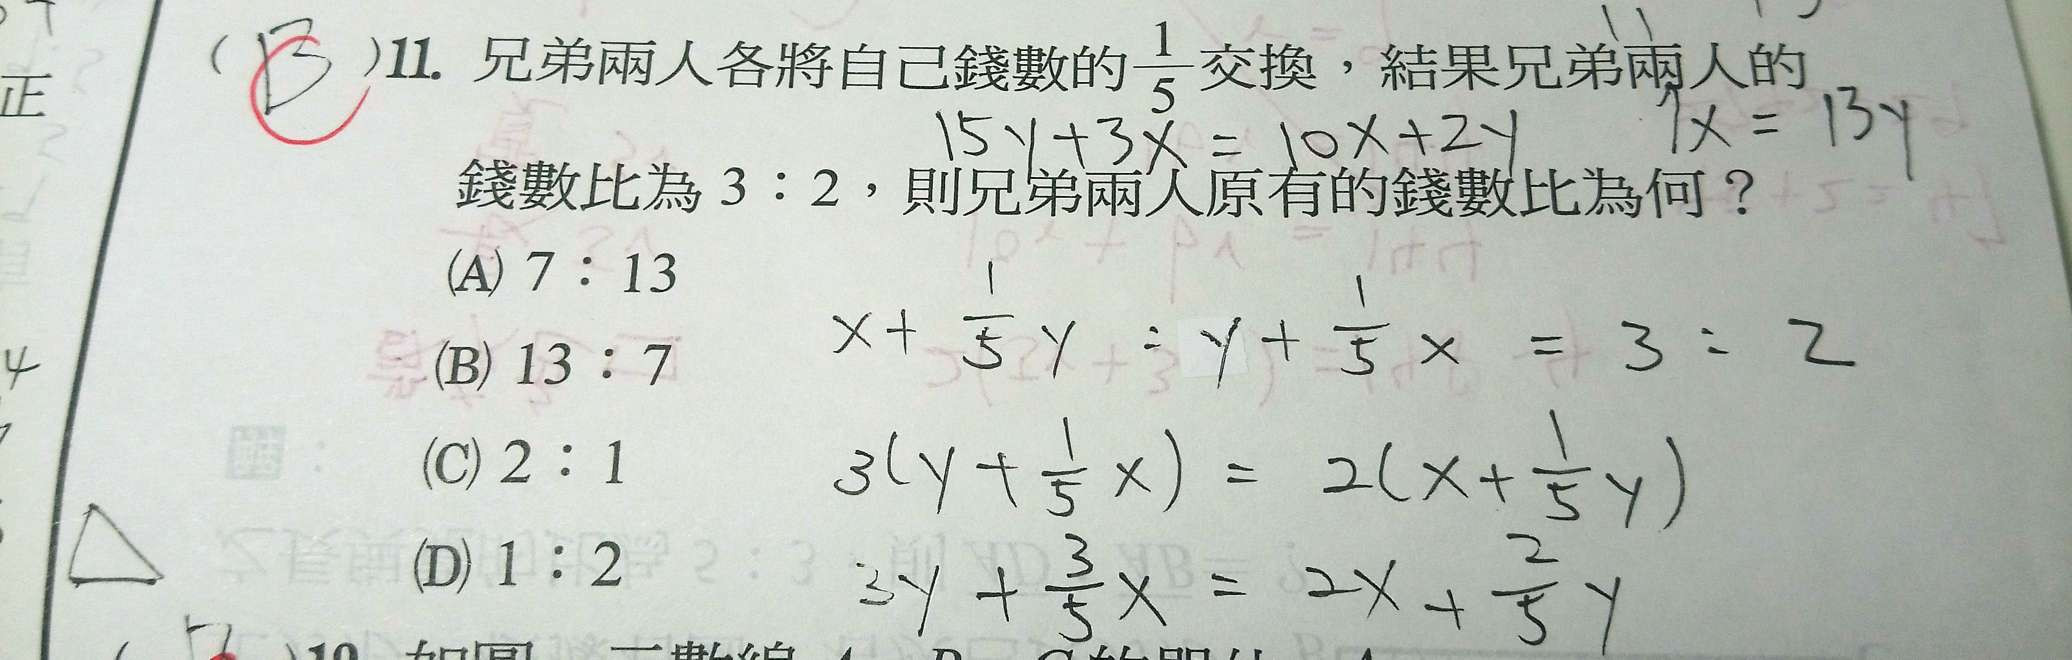 (B)11. 兄弟兩人各將自己錢數的1/5交換，結果兄弟兩人的
15y+3x = 10x+2y 7x = 13y
錢數比為 3：2，則兄弟兩人原有的錢數比為何？
(A) 7：13
(B) 13：7
(C) 2：1
(D) 1：2
x + 1/5 y : y + 1/5 x = 3 : 2
3(y + 1/5 x) = 2(x + 1/5 y)
3y + 3/5 x = 2x + 2/5 y
正
4